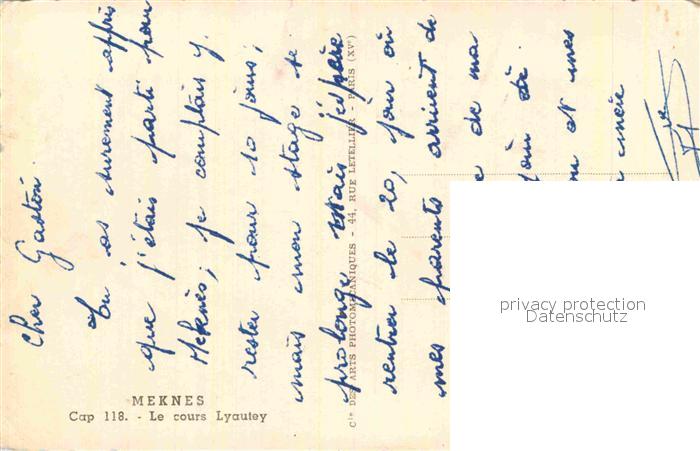 Cher Gaston.
Tu as surement appris
que j'étais parti pour
Meknès; je comptais y
rester pour 10 jours;
mais mon stage se
prolonge mais j'espère
rentrer le 20, jour où
mes parents arrivent de
de ma
et mes
MEKNES
Cap 118. - Le cours Lyautey
Cie DES ARTS PHOTOMECANIQUES - 44, RUE LETELLIER - PARIS (XVe)
privacy protection
Datenschutz